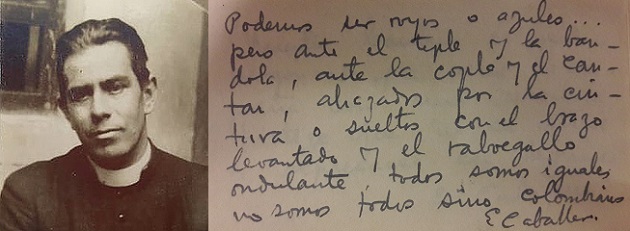 Podemos ser rojos o azules...
pero ante el tiple y la ban-
dola, ante la copla y el can-
tar, abrazados por la cin-
tura o sueltos con el brazo
levantado y el rabuegallo
ondulante, todos somos iguales
no somos todos sino colombianos
E Caballer.